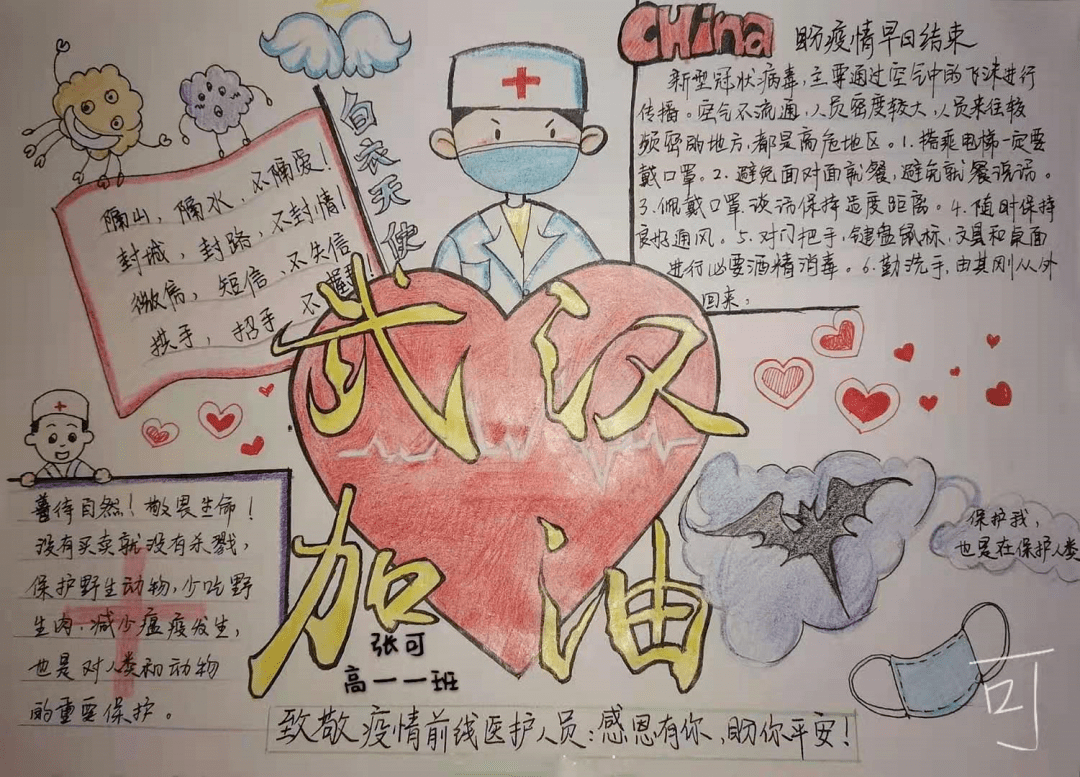 CHina 盼疫情早日结束
新型冠状病毒,主要通过空气中的飞沫进行
传播。空气不流通,人员密度较大,人员来往较
频密的地方,都是高危地区。1.搭乘电梯一定要
戴口罩。2.避免面对面就餐,避免就餐说话。
3.佩戴口罩谈话保持适度距离。4.随时保持
良好通风。5.对门把手,键盘鼠标,文具和桌面
进行必要酒精消毒。6.勤洗手,由其刚从外
回来;
白衣天使
隔山,隔水,不隔爱!
封城,封路,不封情!
微信,短信,不失信!
拱手,招手,不握手!
武汉
加油
张可
高一一班
善待自然!敬畏生命!
没有买卖就没有杀戮,
保护野生动物,少吃野
生肉,减少瘟疫发生,
也是对人类和动物
的重要保护。
保护我,
也是在保护人类
致敬疫情前线医护人员:感恩有你,盼你平安!
可